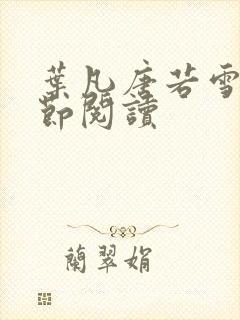 葉凡唐若雪
節閱讀
蘭翠娟